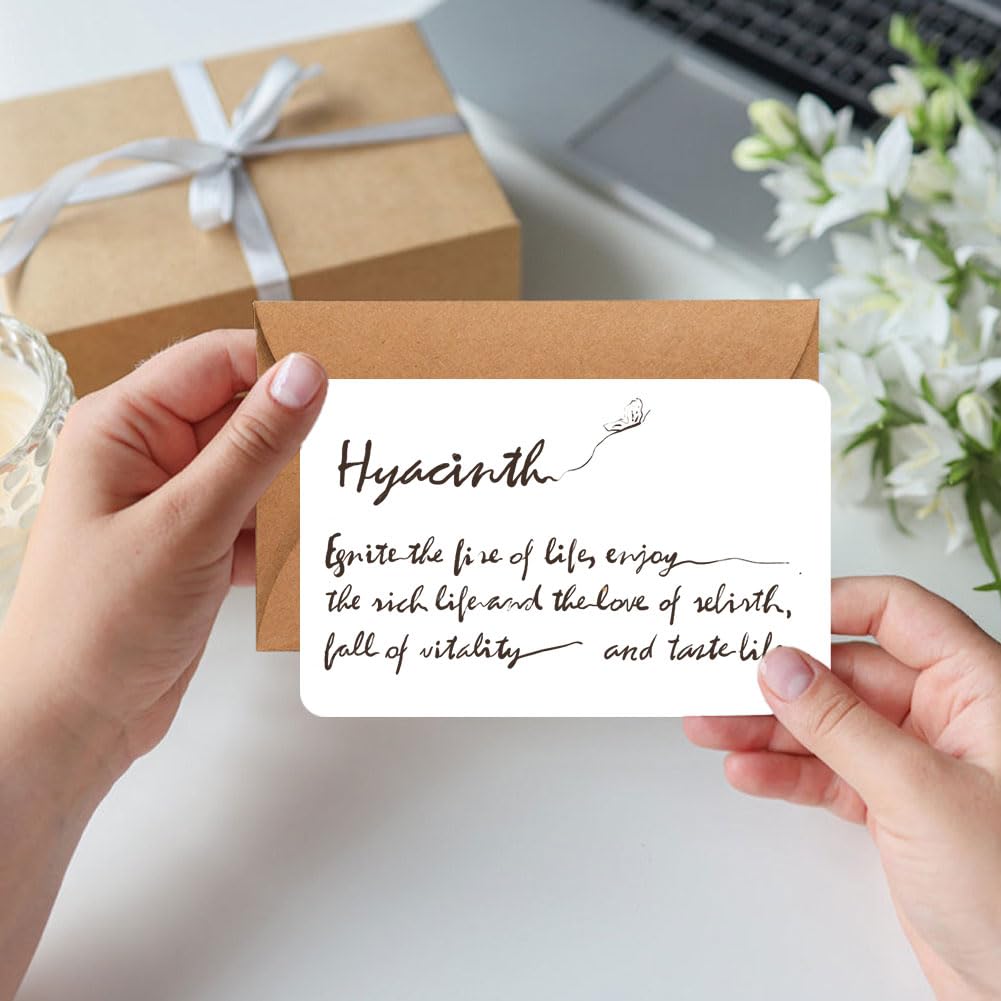 Hyacinth
Egnite the fire of life, enjoy
the rich life and the love of rebirth,
fall of vitality and taste life